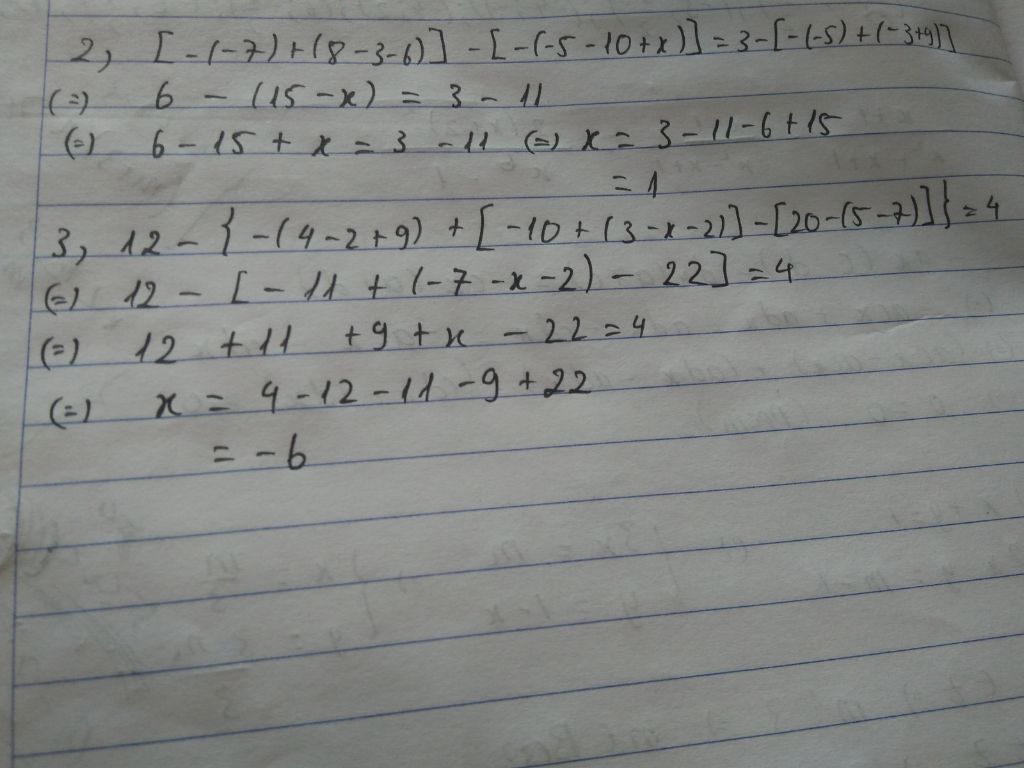 2, [-(-7)+(8-3-6)] - [-(-5-10+x)] = 3-[-(-5)+(-3+9)]
(=) 6 - (15-x) = 3 - 11
(=) 6 - 15 + x = 3 - 11 (=) x = 3 - 11 - 6 + 15
= 1
3, 12 - { -(4-2+9) + [-10+(3-x-2)] - [20-(5-7)]} = 4
(=) 12 - [ - 11 + (-7 -x-2) - 22] = 4
(=) 12 + 11 + 9 + x - 22 = 4
(=) x = 4 - 12 - 11 - 9 + 22
= - 6